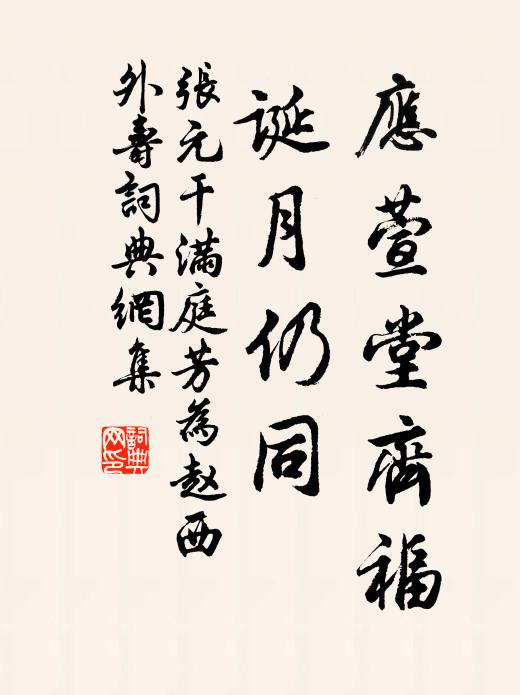 應萱堂齊福
誕月仍同
張元干滿庭芳為赵西
外壽詞典網集
詞典
网印